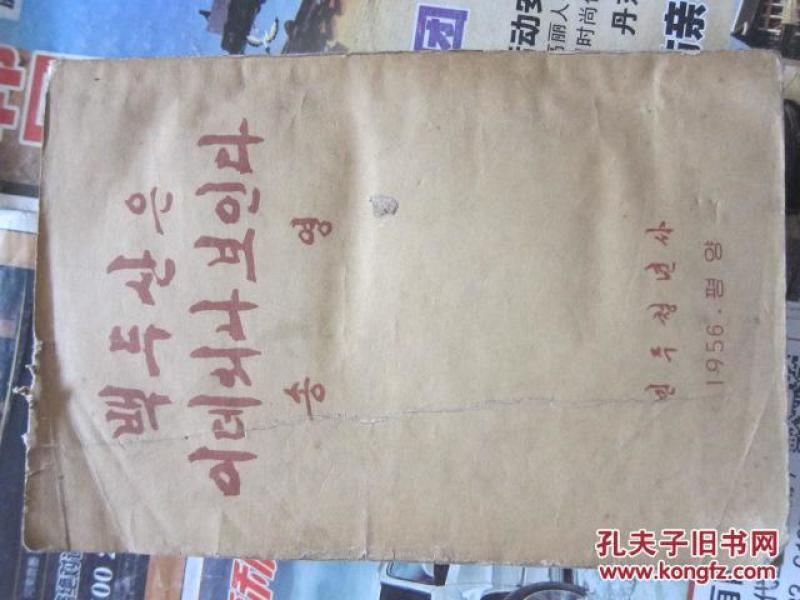 백두산은
어데서나 보인다
송 영
민주청년사
1956. 평양
团
丹
亲
孔夫子旧书网
www.kongfz.com